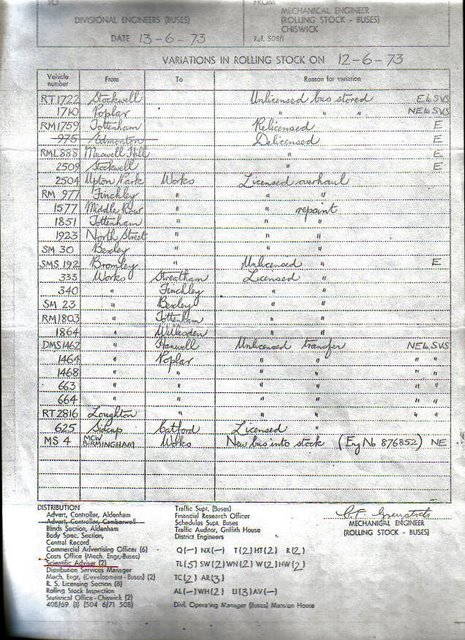 TO
FROM
MECHANICAL ENGINEER
DIVISIONAL ENGINEERS (BUSES)
(ROLLING STOCK - BUSES)
CHISWICK
DATE 13-6-73
Ref. 508/1
VARIATIONS IN ROLLING STOCK ON 12-6-73
Vehicle number From To Reason for variation
RT1722 Stockwell Unlicensed bus stored E & SVS
1710 Poplar " " " NE & SVS
RM1759 Tottenham Relicensed E
975 Edmonton Delicensed E
RML888 Muswell Hill " E
2509 Stockwell " E
2504 Upton Park Works Licensed overhaul
RM 977 Finchley " " "
1577 Middle Row " " repaint
1851 Tottenham " " "
1923 North Street " " "
SM 30 Bexley " " "
SMS 192 Bromley " Unlicensed " E
333 Works Streatham Licensed "
340 " Finchley " "
SM 23 " Bexley " "
RM1803 " Tottenham " "
1864 " Willesden " "
DMS1462 " Hanwell Unlicensed transfer NE & SVS
1464 " Poplar " " " "
1468 " " " " " "
663 " " " " " "
664 " " " " " "
RT2816 Loughton " " " " "
625 Sidcup Catford Licensed "
MS 4 MCW BIRMINGHAM Works New bus into stock (Eng No 876852) NE
DISTRIBUTION
Advert, Controller, Aldenham
Advert, Controller, Camberwell
Blinds Section, Aldenham
Body Spec. Section,
Central Record
Commercial Advertising Officer (6)
Costs Office (Mech. Engr-Buses)
Scientific Adviser (2)
Distribution Services Manager
Mech. Engr, (Development-Buses) (2)
R. S. Licensing Section (8)
Rolling Stock Inspection
Statistical Office - Chiswick (2)
408/69 (1) (504 6/71 508)
Traffic Supt. (Buses)
Financial Research Officer
Schedules Supt. Buses
Traffic Auditor, Griffith House
District Engineers
Q(-) NX(-) T(2) HT(2) R(2)
TL(5) SW(2) WN(2) W(2) HW(2)
TC(2) AR(3)
AL(-) WH(2) U(3) AV(-)
Divl. Operating Manager (Buses) Mansion House
MECHANICAL ENGINEER
(ROLLING STOCK - BUSES)